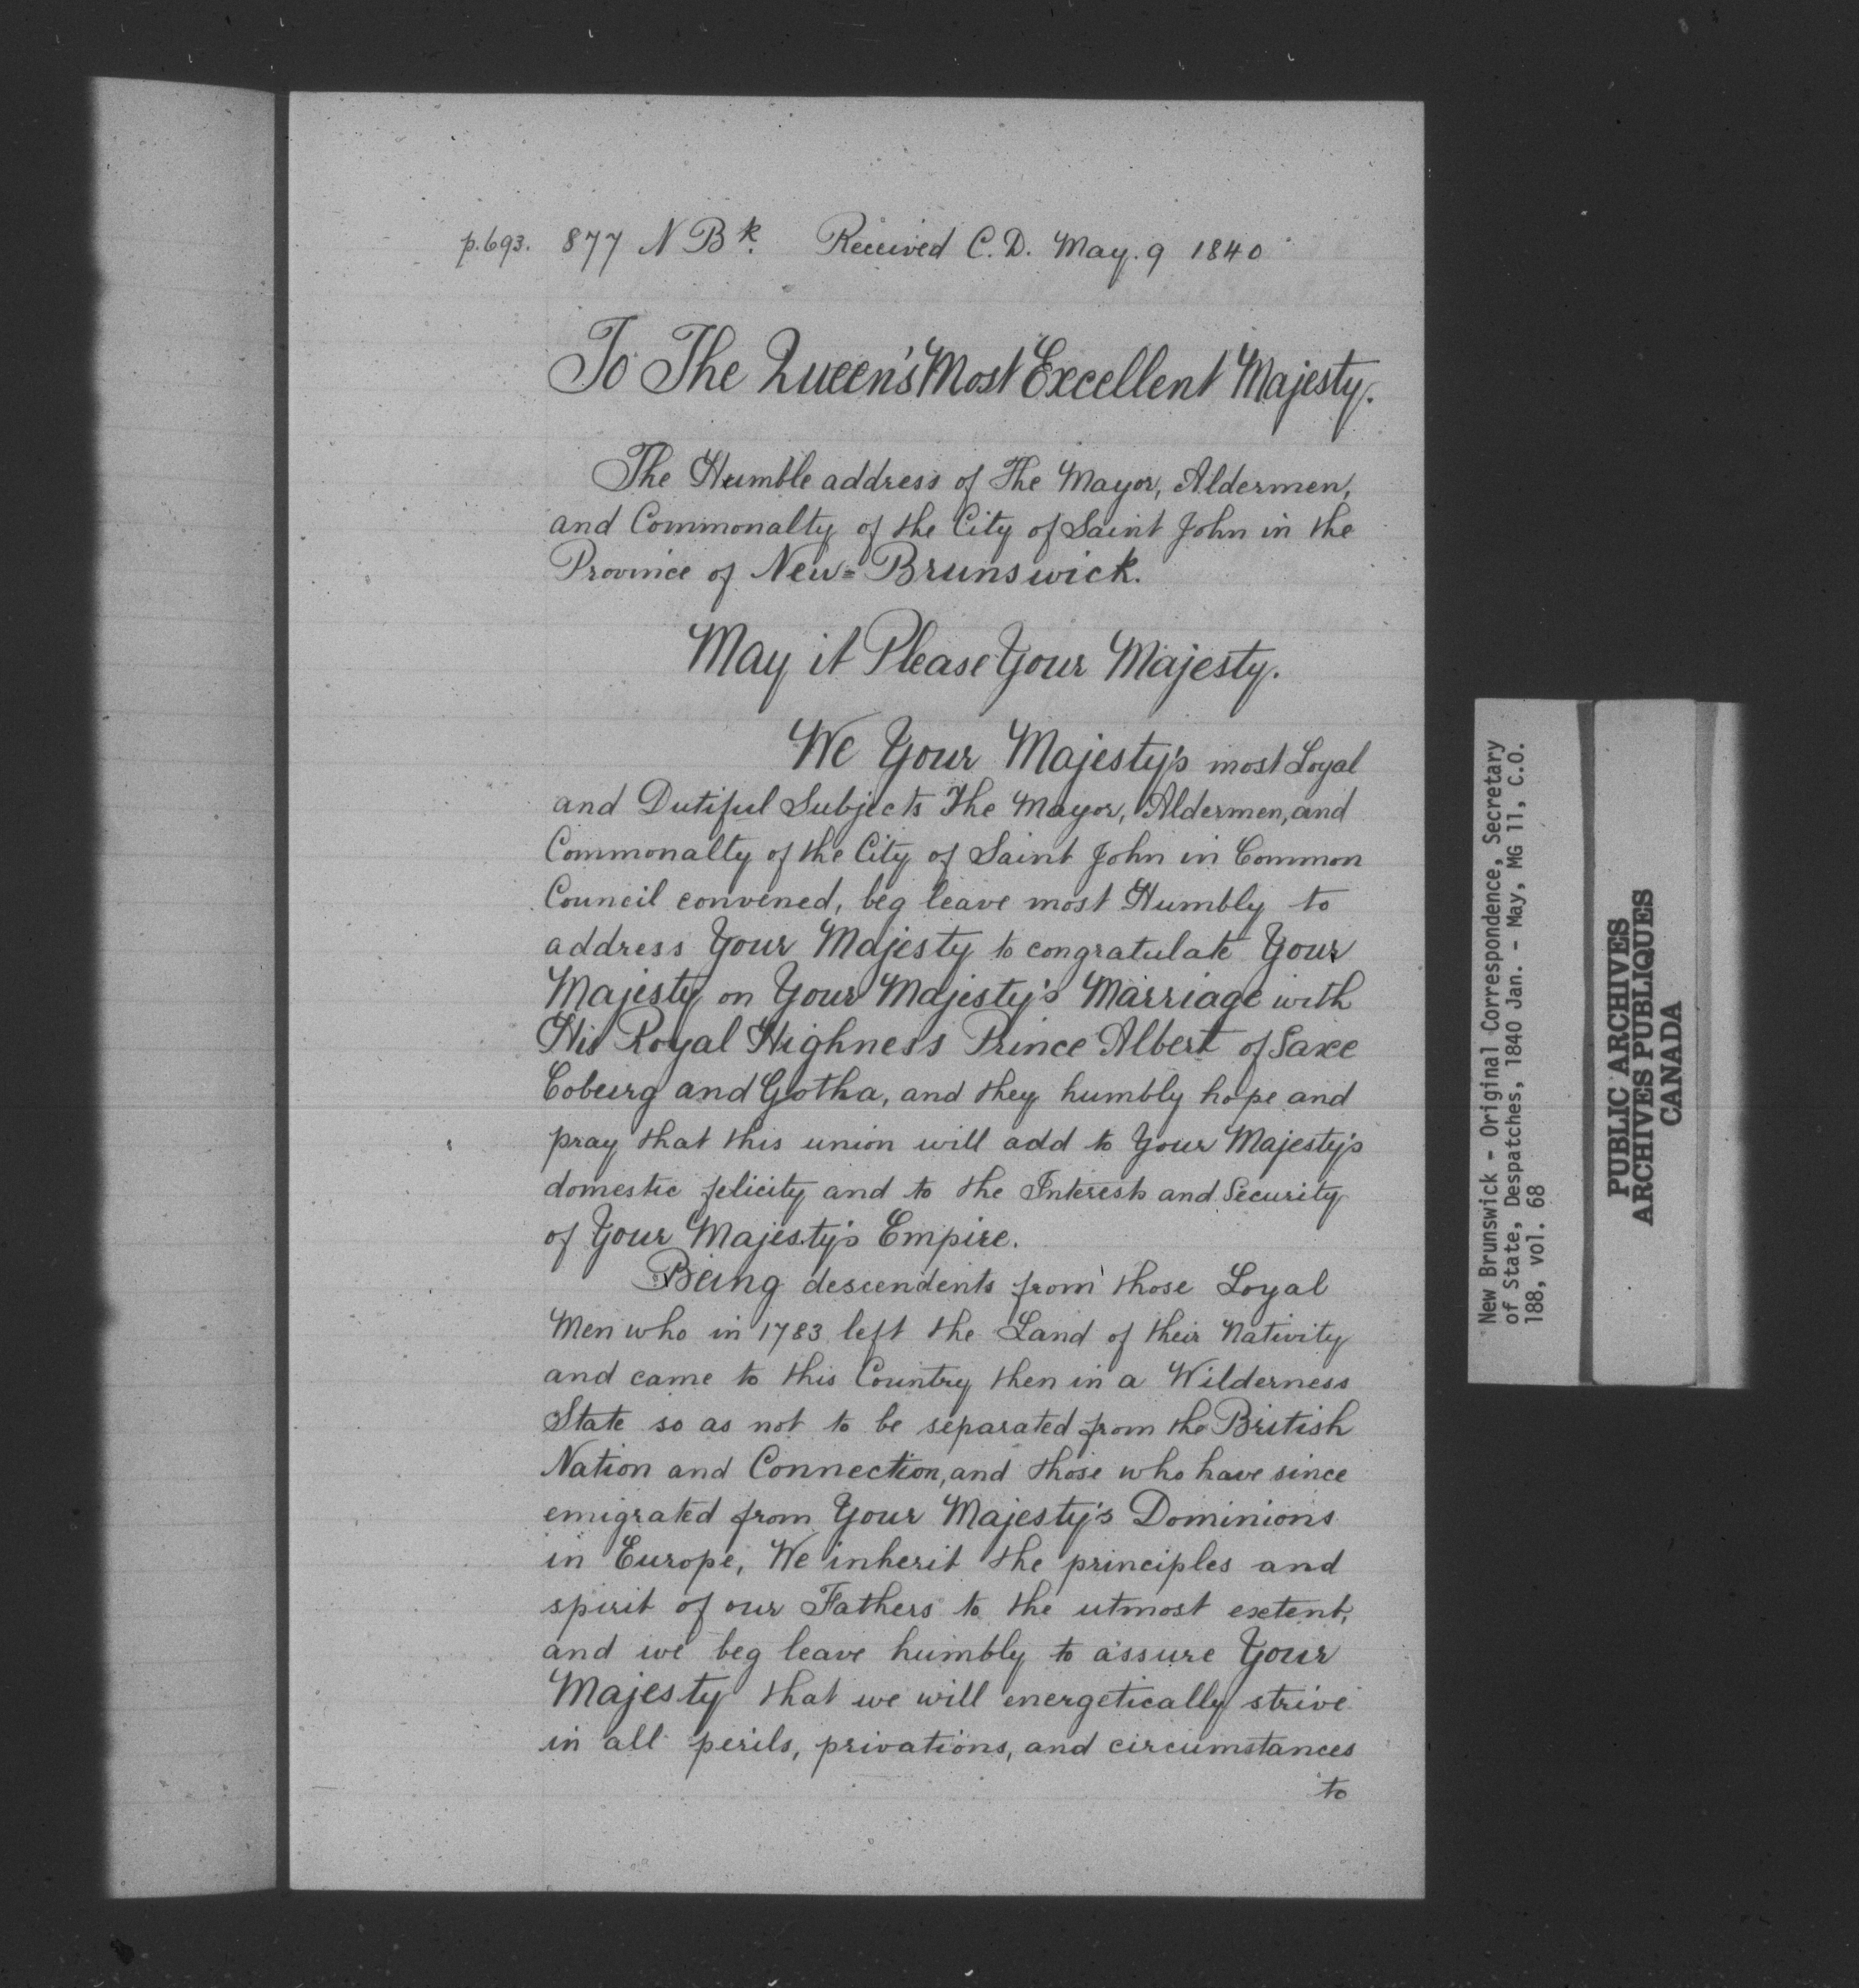 p.693. 877 N Bk. Received C.D. May. 9 1840
To The Queen's Most Excellent Majesty.
The Humble address of The Mayor, Aldermen,
and Commonalty of the City of Saint John in the
Province of New=Brunswick.
May it Please Your Majesty.
We Your Majesty's most Loyal
and Dutiful Subjects The Mayor, Aldermen, and
Commonalty of the City of Saint John in Common
Council convened, beg leave most Humbly to
address Your Majesty to congratulate Your
Majesty on Your Majesty's Marriage with
His Royal Highness Prince Albert of Saxe
Coburg and Gotha, and they humbly hope and
pray that this union will add to Your Majesty's
domestic felicity and to the Interests and Security
of Your Majesty's Empire.
Being descendents from those Loyal
Men who in 1783 left the Land of their Nativity
and came to this Country then in a Wilderness
State so as not to be separated from the British
Nation and Connection, and those who have since
emigrated from Your Majesty's Dominions
in Europe, We inherit the principles and
spirit of our Fathers to the utmost extent,
and we beg leave humbly to assure Your
Majesty that we will energetically strive
in all perils, privations, and circumstances
to
New Brunswick - Original Correspondence, Secretary
of State, Despatches, 1840 Jan. - May, MG 11, C.O.
188, vol. 68
PUBLIC ARCHIVES
ARCHIVES PUBLIQUES
CANADA